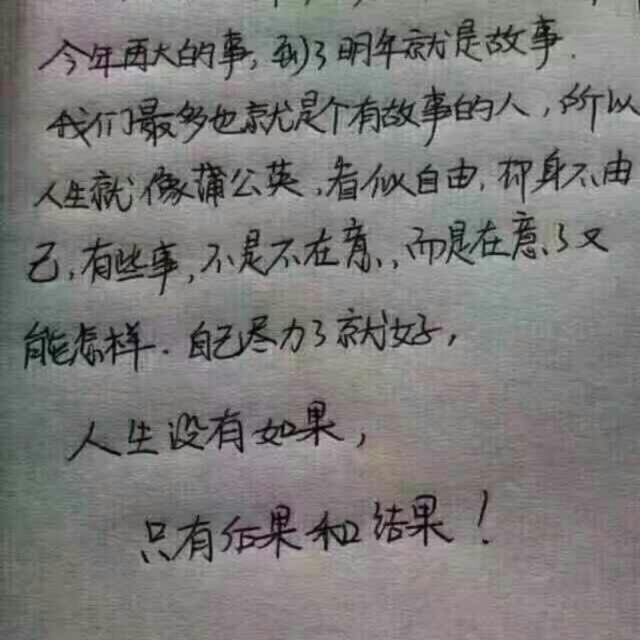 今年再大的事,到了明年就是故事.
我们最多也就是个有故事的人,所以
人生就像蒲公英,看似自由,却身不由
己,有些事,不是不在意,而是在意了又
能怎样.自己尽力了就好,
人生没有如果,
只有后果和结果!